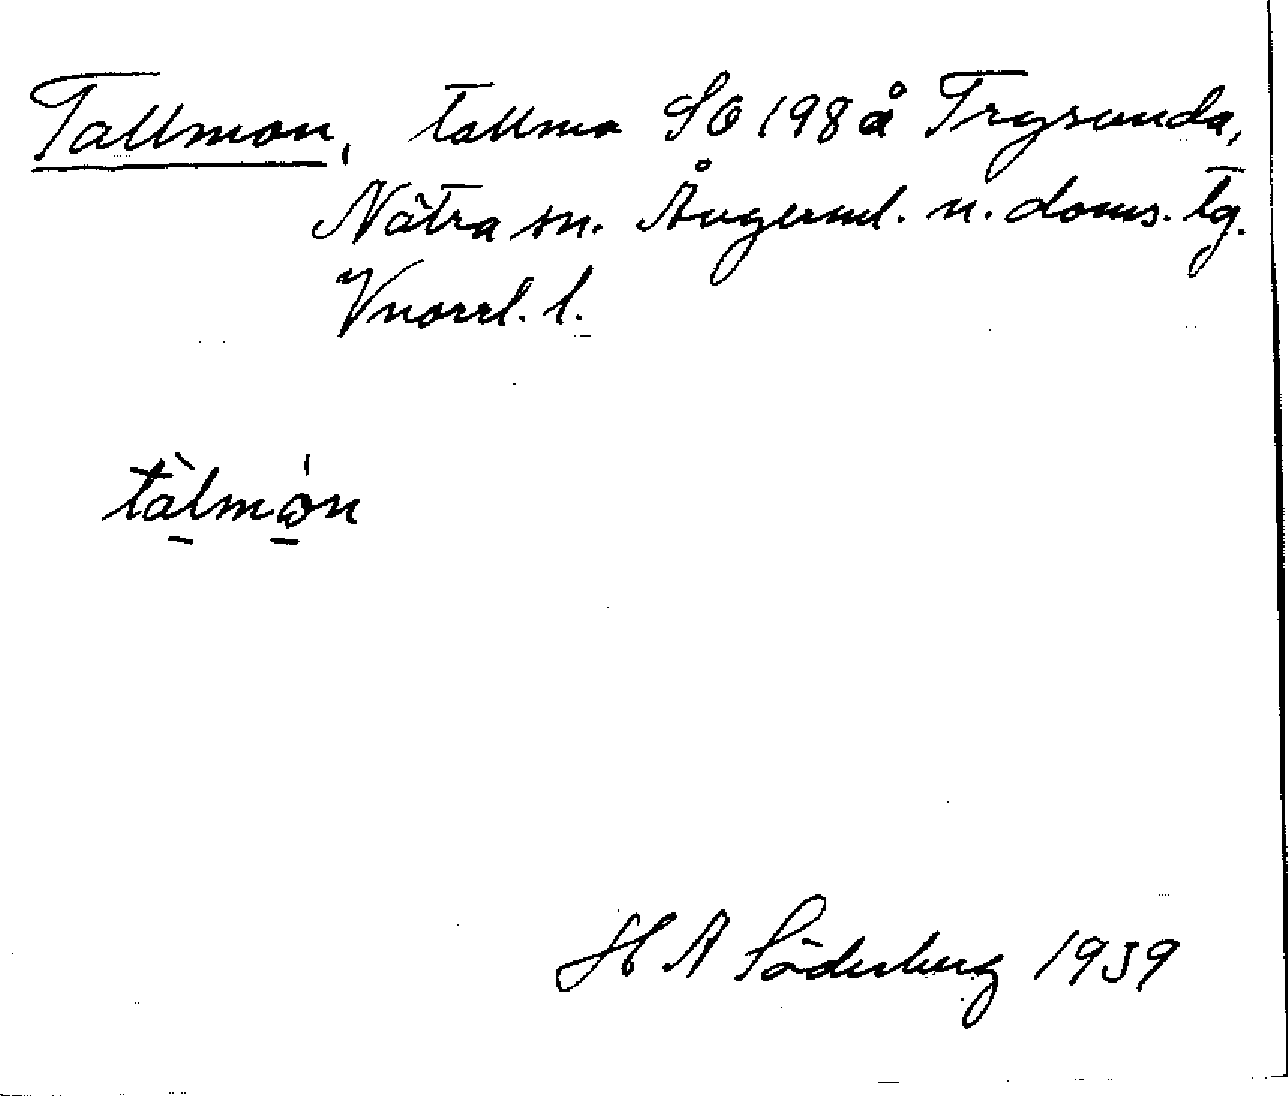 Tallmon, tallmo SO 198 å Trysunda,
Nätra sn. Ångerml. n. doms. tg.
Vnorrl. l.
tàlmón
H A Söderberg 1939